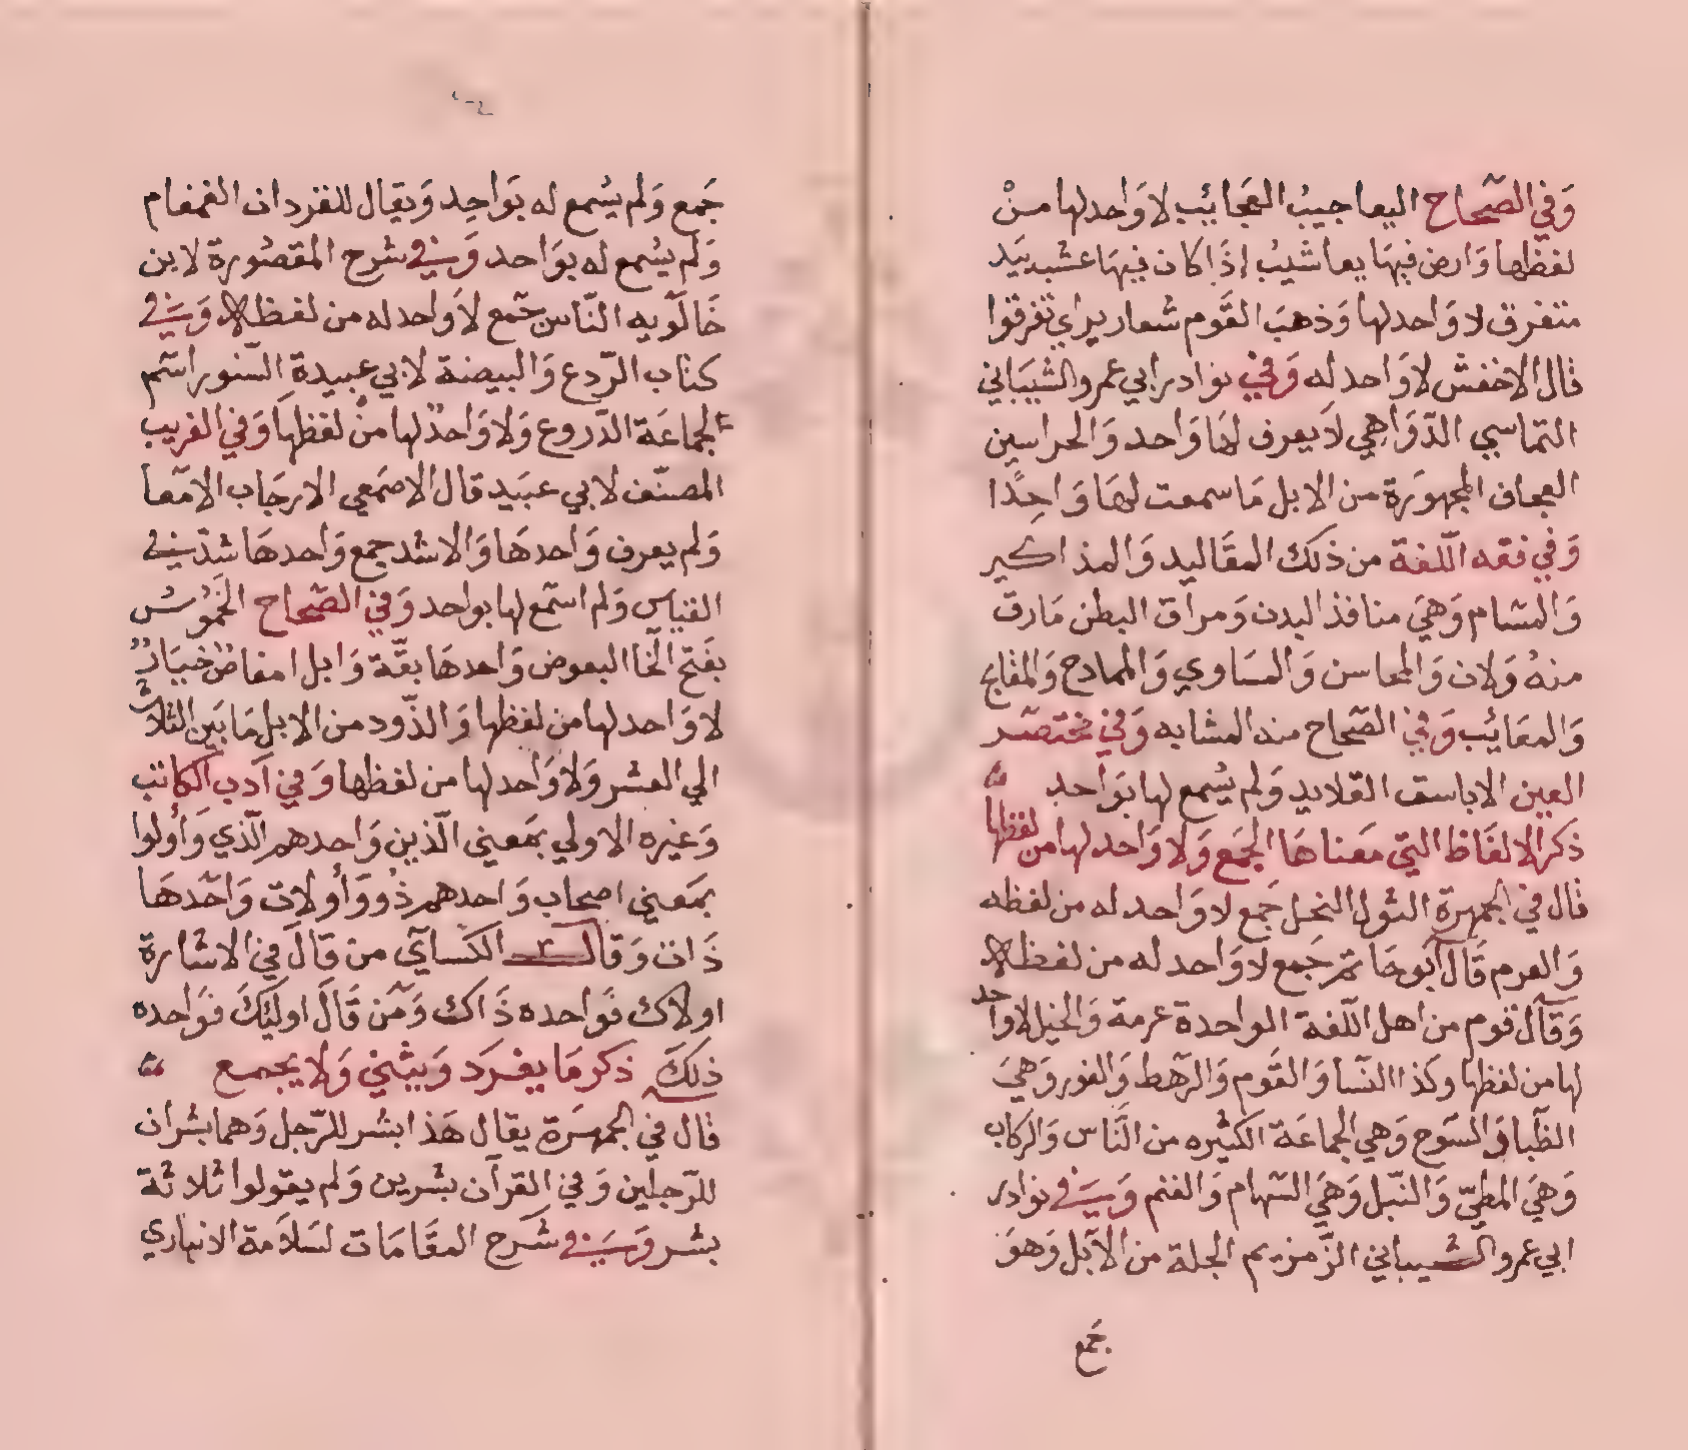 وَفي الصّحاح اليعاجيبُ العَجايُب لا وَاحد لها منْ
لفظها وَارض فيهَا يعاشيبُ إذَا كان فيهَا عشب يَد
متفرق لا وَاحد لها وَذهبَ القَوم شعارير اي تفرقوا
قال الاخفش لا وَاحد له وَفي نوادر ابي عمرو الشيبَاني
التماسي الدّوَاهِي لا يعرف لهَا وَاحد وَالحراسين
العجاف المجهوَرة من الابل مَا سمعت لهَا وَاحِدًا
وَفي فقه اللّغة من ذلك المقَاليد وَالمذاكير
وَالمسَام وَهيَ منافذ البدن وَمراق البطن مَا رق
منهُ وَلان وَالمحاسن وَالمسَاوي وَالممادح وَالمقابح
وَالمعَايُب وَفي الصّحاح منه المشابه وَفي مختصَر
العين الاباسق القلايد وَلم يسُمع لها بوَاحد
ذكر الالفَاظ التي مَعناهَا الجَمع وَلا وَاحد لها من لفظها
قال في الجمهرة الثول النحل جَمع لا وَاحد له من لفظه
وَالعرم قَال اَبو حَاتم جَمع لا وَاحد له من لفظه
وَقَال قوم من اهل اللّغة الواحدة عرمة وَالخيل لا واحد
لها من لفظها وكذا النّسا وَالقَوم وَالرّهط وَالفور وَهيَ
الظّبا وَالتنوح وَهي الجماعَة الكثيره من النَّاس وَالركاب
وَهيَ المطيّ وَالنّبل وَهيَ السّهام وَالغنم وَفي نوادر
ابي عمرو الشيباني الزّمزيم الجلة من الاَبل وَهوَ
جَمع
جَمع وَلم يسُمع له بوَاحِد وَيقال للقردان القمقام
وَلم يسُمع له بوَاحد وَفي شرح المقصُورة لابن
خَالَويه النّاس جَمع لا وَاحد له من لفظه وَفي
كتاب الدّرع وَالبيضة لابي عبيدة السّنور اسم
لجماعَة الدّروع وَلا وَاحدٌ لها منْ لفظهَا وَفي الغريب
المصنّف لابي عبَيد قال الاصمَعي الارجَاب الامَعا
وَلم يعرف وَاحدهَا وَالاشد جمع وَاحدهَا شدّ في
القياس وَلم اسمَع لها بواحد وَفي الصّحاح الخَموُسُ
بفَتح الخَا البعوض وَاحدهَا بقّة وَابل امغاصٌ خيَارٌ
لا وَاحد لها من لفظها وَالذّود من الابل مَا بَين الثلاث
الي العشر وَلا وَاحد لها من لفظها وَفي اَدب الكَاتب
وَغيره الاولي بمَعني الّذين وَاحدهم الّذي وَأُولوا
بمَعني اصحاب وَاحدهم ذُو وَأُولات وَاحَدهَا
ذَات وَقال الكَسايَ من قَال في الاشارة
اولاك فوَاحده ذَاك وَمَن قَالَ اوليَكَ فوَاحده
ذلكَ ذكر مَا يفرَد وَيثني وَلا يجمع
قال في الجمهَرة يقال هَذا بشر للرّجل وَهما بشران
للرّجلين وَفي القرآن بشرين وَلم يقولوا ثلاثة
بشر وَفي شَرح المقَامَات لسَلاَمَة الانباري